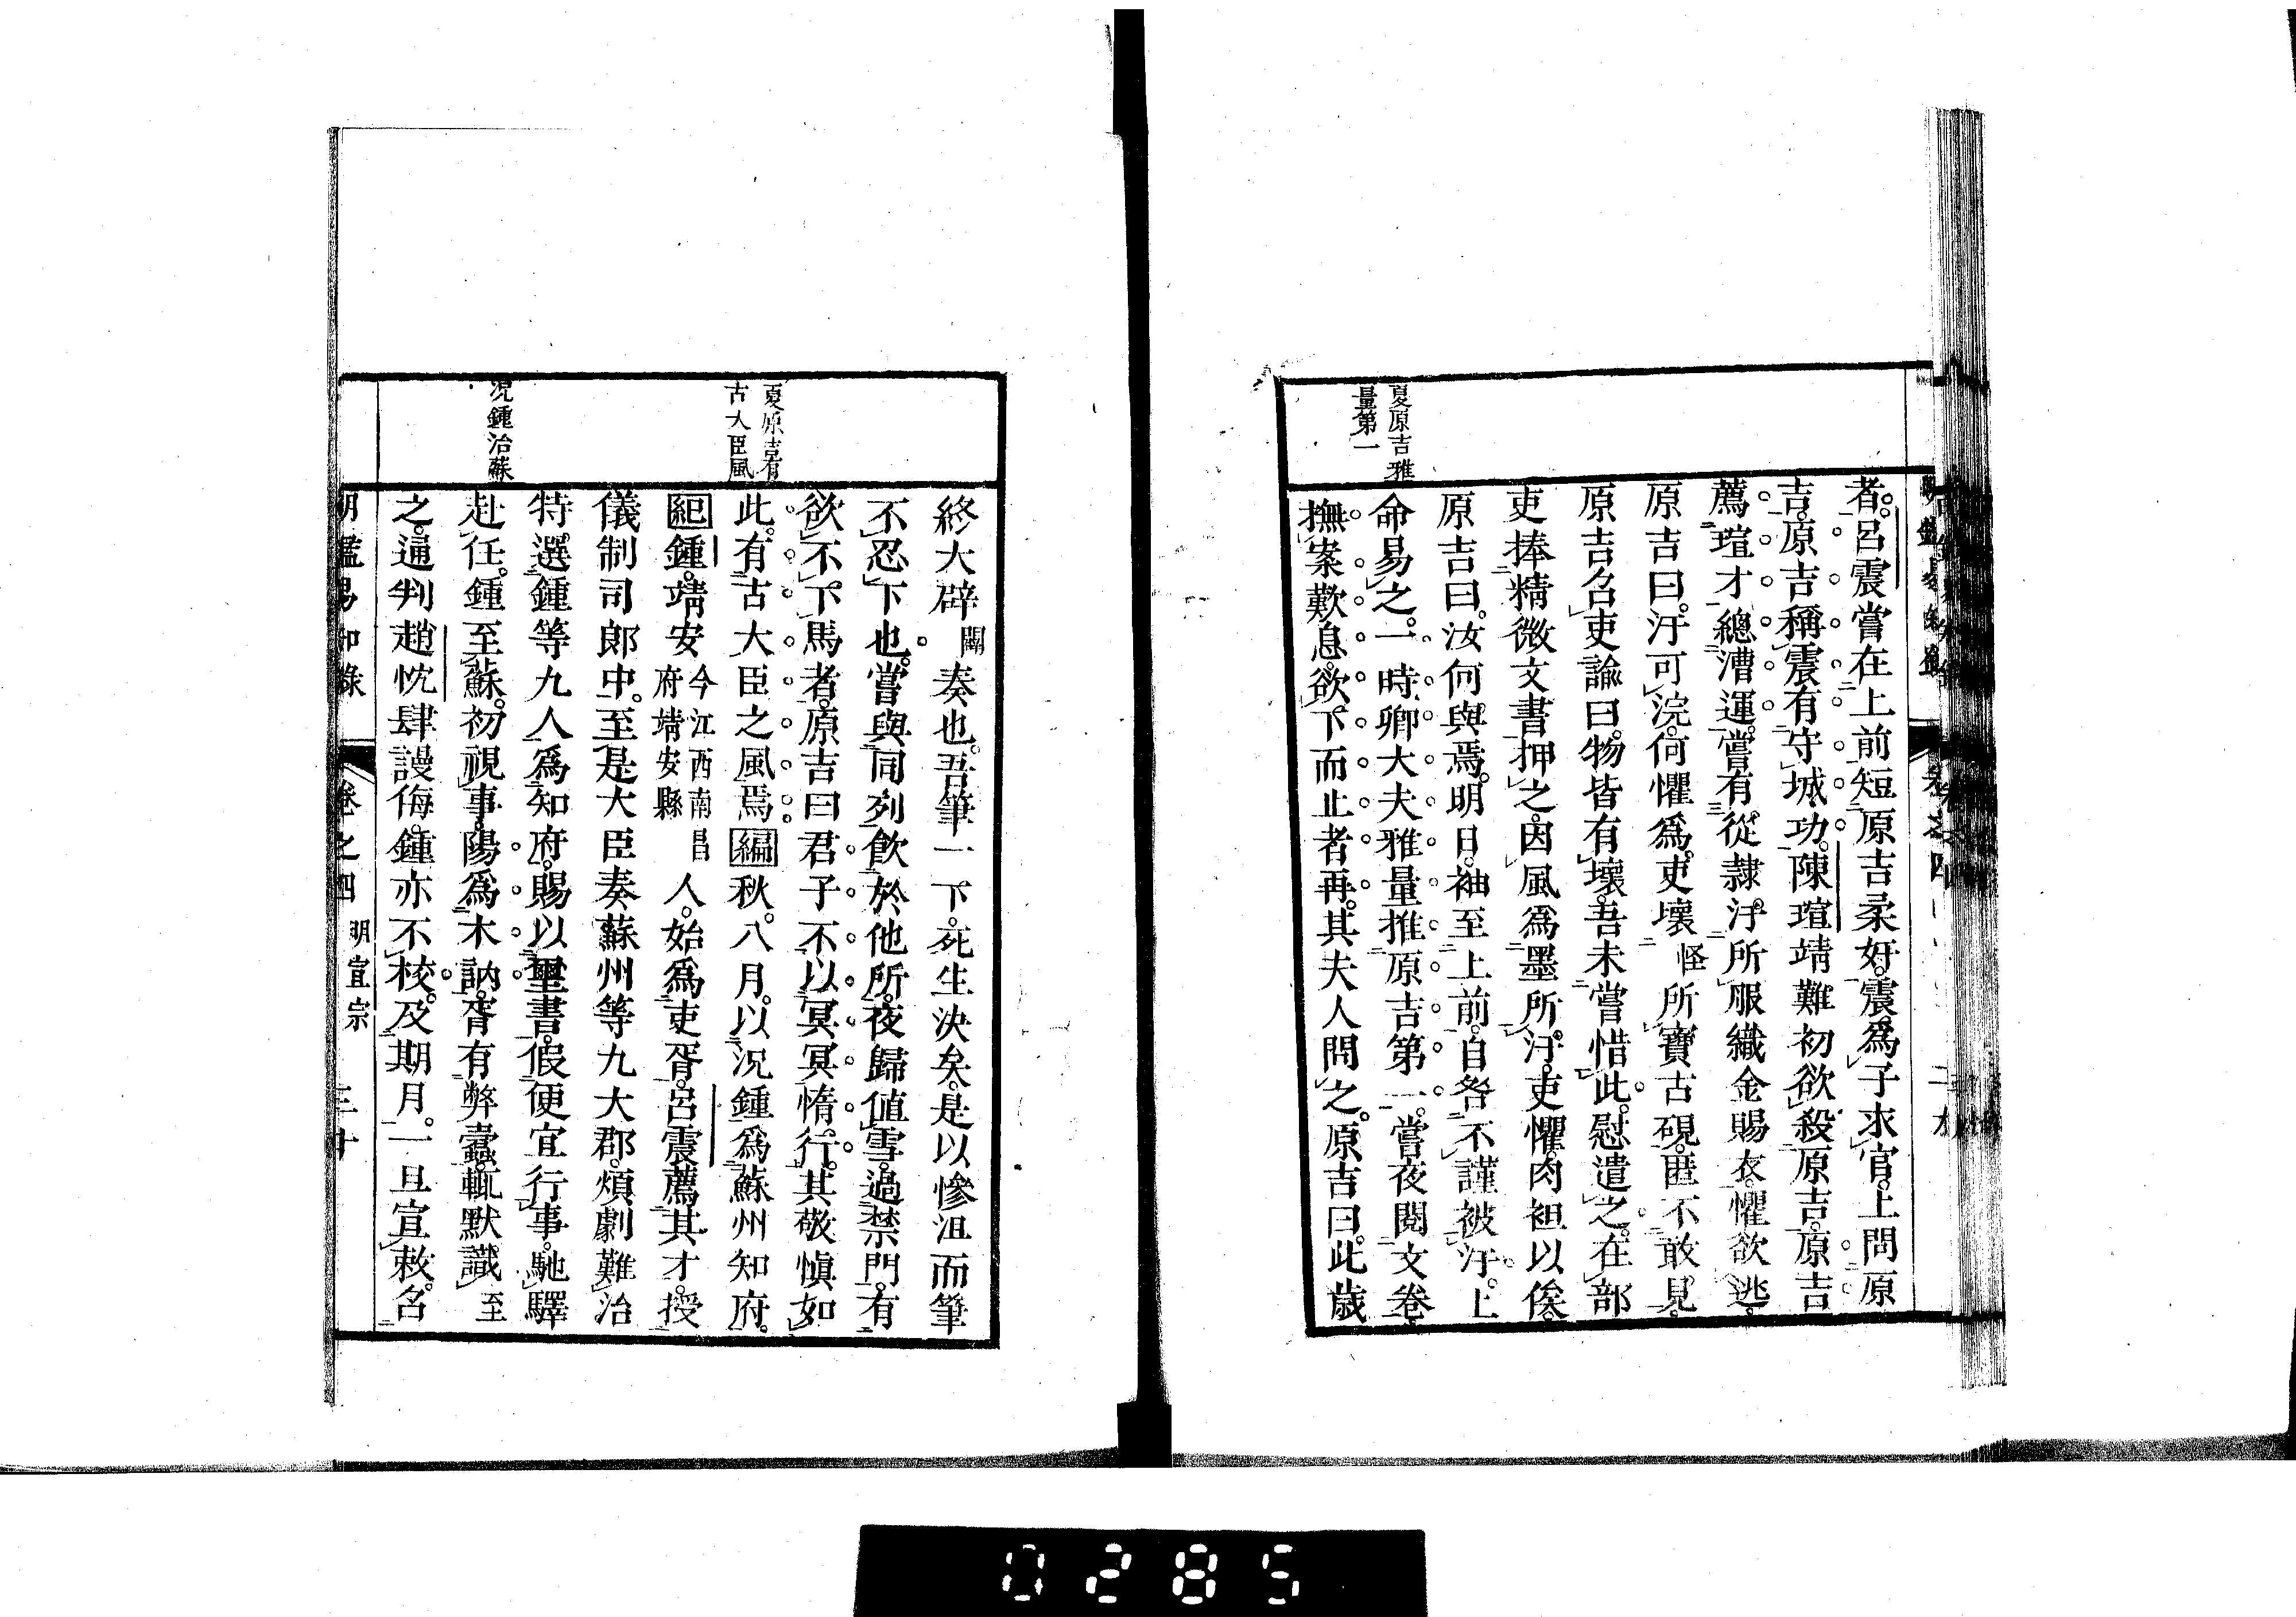 夏原吉雅
量第一
者。呂震嘗在上前短原吉柔奸。震爲子求官。上問原
吉。原吉稱震有守城功。陳瑄靖難初欲殺原吉。原吉
薦瑄才總漕運。嘗有從隷汙所服織金賜衣。懼欲逃。
原吉曰。汙可浣。何懼爲。吏壞怪所寶古硯。匿不敢見。
原吉召吏諭曰。物皆有壞。吾未嘗惜此。慰遣之。在部
吏捧精微文書押之。因風爲墨所汙。吏懼。肉袒以俟。
原吉曰。汝何與焉。明日。袖至上前。自咎不謹被汙。上
命易之。一時卿大夫雅量推原吉第一。嘗夜閱文卷。
撫案歎息。欲下而止者再。其夫人問之。原吉曰。此歲
夏原吉有
古大臣風
況鍾治蘇
終大辟闗奏也。吾筆一下。死生決矣。是以慘沮而筆
不忍下也。嘗與同列飲於他所。夜歸値雪。過禁門。有
欲不下馬者。原吉曰君子不以冥冥惰行。其敬愼如
此。有古大臣之風焉。編秋。八月。以況鍾爲蘇州知府。
紀鍾。靖安今江西南昌府靖安縣人。始爲吏胥。呂震薦其才。授
儀制司郎中。至是大臣奏蘇州等九大郡。煩劇難治
特選鍾等九人爲知府。賜以璽書。假便宜行事。馳驛
赴任。鍾至蘇。初視事。陽爲木訥。胥有弊蠹。輒默識至
之。通判趙忱肆謾侮。鍾亦不校。及期月。一旦宣敕。召
明鑑易知錄 卷之四 明宣宗 三十